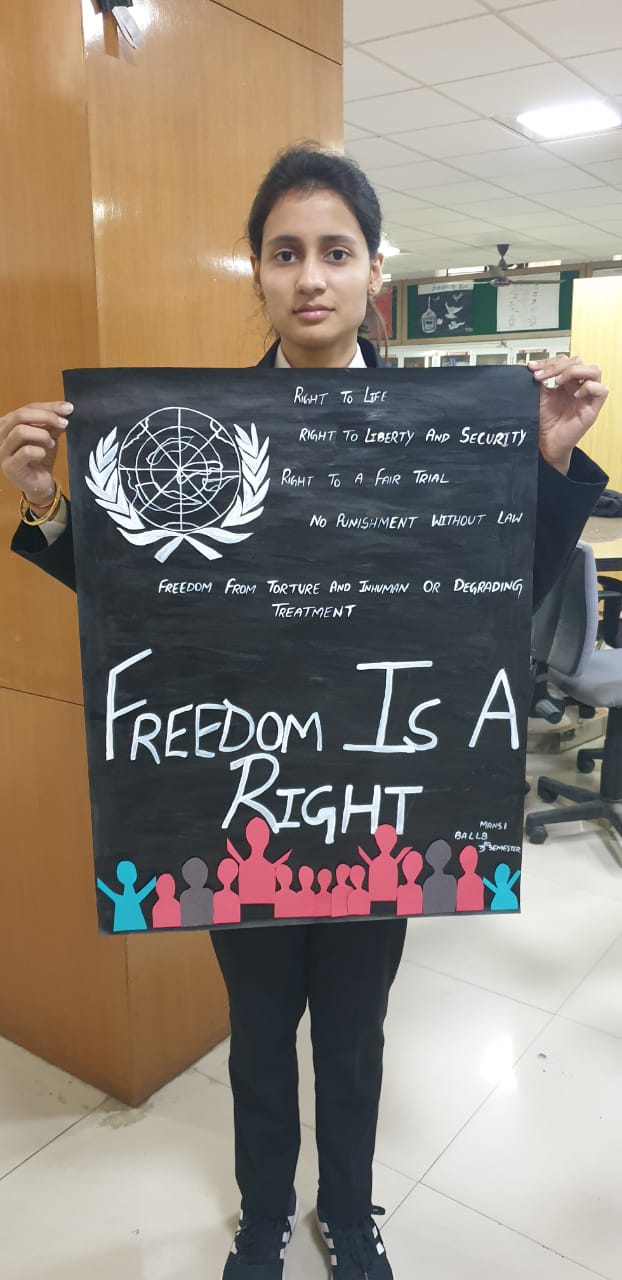 RIGHT TO LIFE
RIGHT TO LIBERTY AND SECURITY
RIGHT TO A FAIR TRIAL
NO PUNISHMENT WITHOUT LAW
FREEDOM FROM TORTURE AND INHUMAN OR DEGRADING
TREATMENT
FREEDOM IS A
RIGHT
MANSI
BALLB
3RD SEMESTER